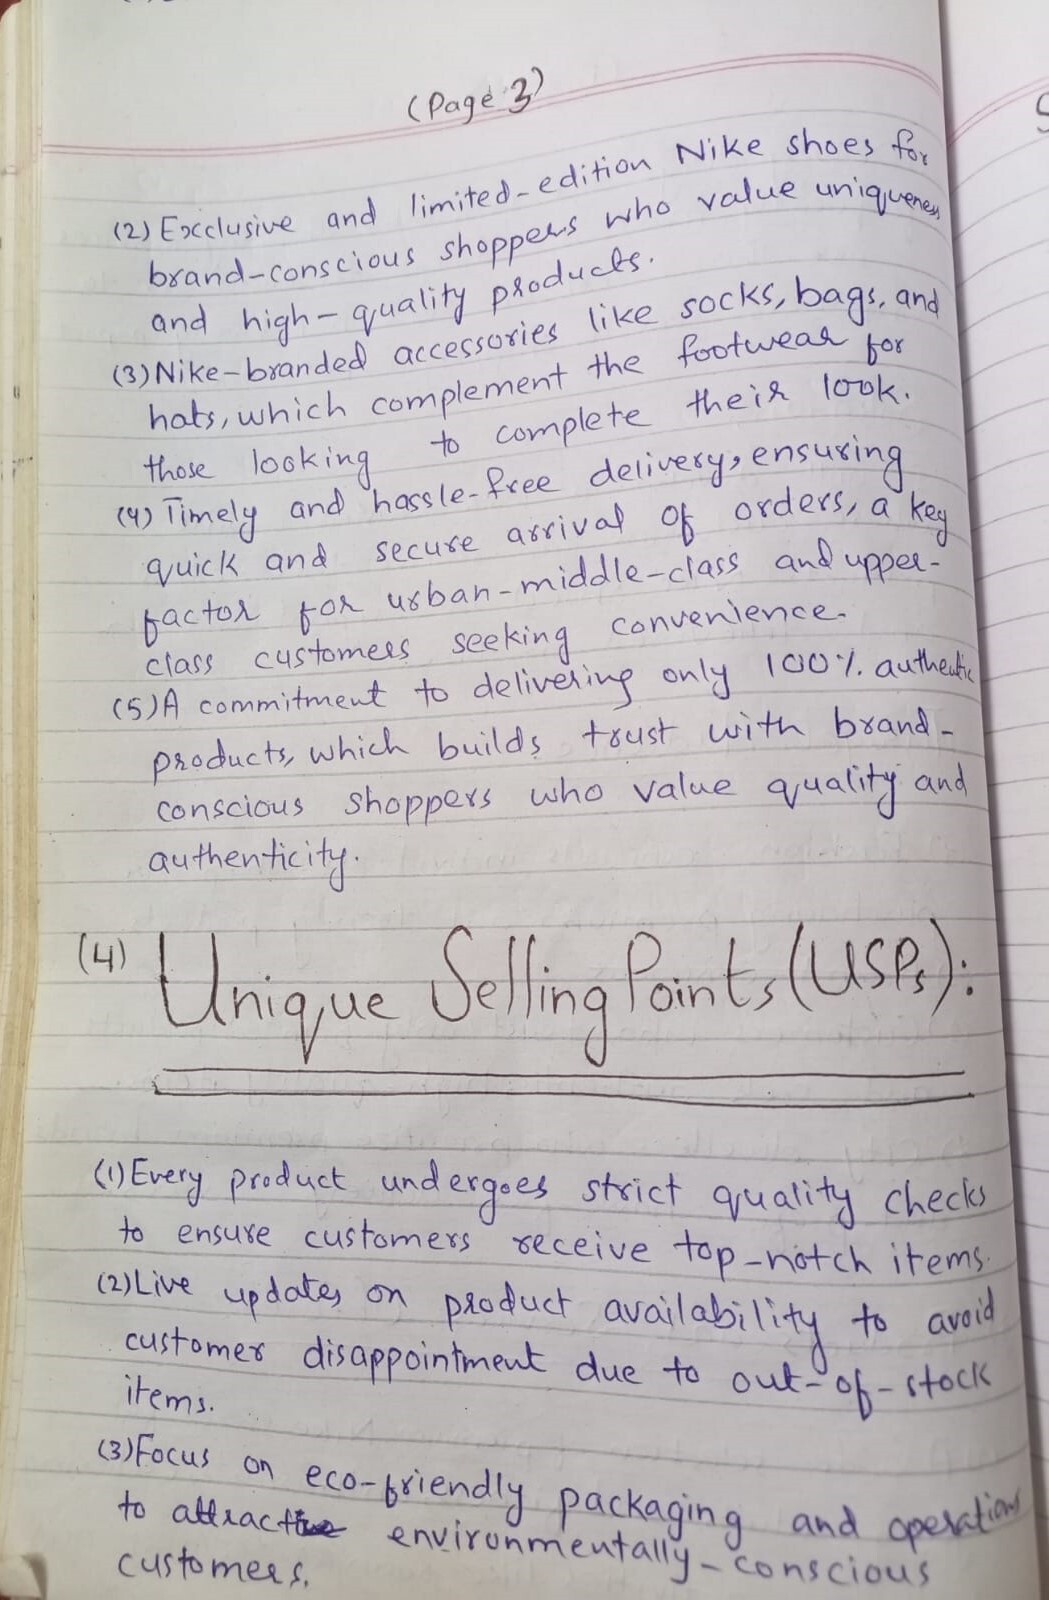 (Page 3)
(2) Exclusive and limited-edition Nike shoes for
brand-conscious shoppers who value uniqueness
and high-quality products.
(3) Nike-branded accessories like socks, bags, and
hats, which complement the footwear for
those looking to complete their look.
(4) Timely and hassle-free delivery, ensuring
quick and secure arrival of orders, a key
factor for urban-middle-class and upper-
class customers seeking convenience.
(5) A commitment to delivering only 100% authentic
products, which builds trust with brand-
conscious shoppers who value quality and
authenticity.
(4) Unique Selling Points (USPs):
(1) Every product undergoes strict quality checks
to ensure customers receive top-notch items.
(2) Live updates on product availability to avoid
customer disappointment due to out-of-stock
items.
(3) Focus on eco-friendly packaging and operations
to attract environmentally-conscious
customers.